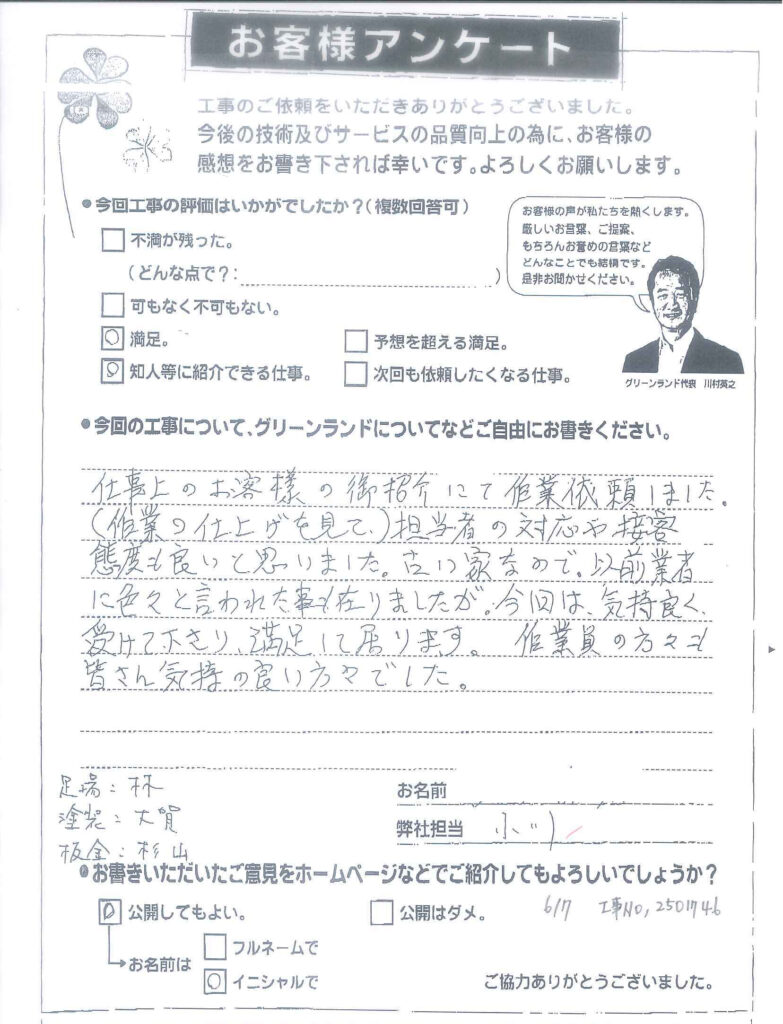 お客様アンケート
工事のご依頼をいただきありがとうございました。
今後の技術及びサービスの品質向上の為に、お客様の
感想をお書き下されば幸いです。よろしくお願いします。
●今回工事の評価はいかがでしたか？(複数回答可)
不満が残った。
(どんな点で？: )
可もなく不可もない。
満足。
予想を超える満足。
知人等に紹介できる仕事。
次回も依頼したくなる仕事。
お客様の声が私たちを熱くします。
厳しいお言葉、ご提案、
もちろんお誉めの言葉など
どんなことでも結構です。
是非お聞かせください。
グリーンランド代表 川村英之
●今回の工事について、グリーンランドについてなどご自由にお書きください。
仕事上のお客様の御紹介にて作業依頼しました。
(作業の仕上げを見て、)担当者の対応や接客
態度も良いと思いました。古い家なので、以前業者
に色々と言われた事も在りましたが。今回は、気持良く、
受けて下さり、満足して居ります。 作業員の方々も
皆さん気持の良い方々でした。
足場：林
塗装：大賀
板金：杉山
お名前
弊社担当
●お書きいただいたご意見をホームページなどでご紹介してもよろしいでしょうか？
公開してもよい。
公開はダメ。
6/17 工事NO, 2501746
お名前は
フルネームで
イニシャルで
ご協力ありがとうございました。